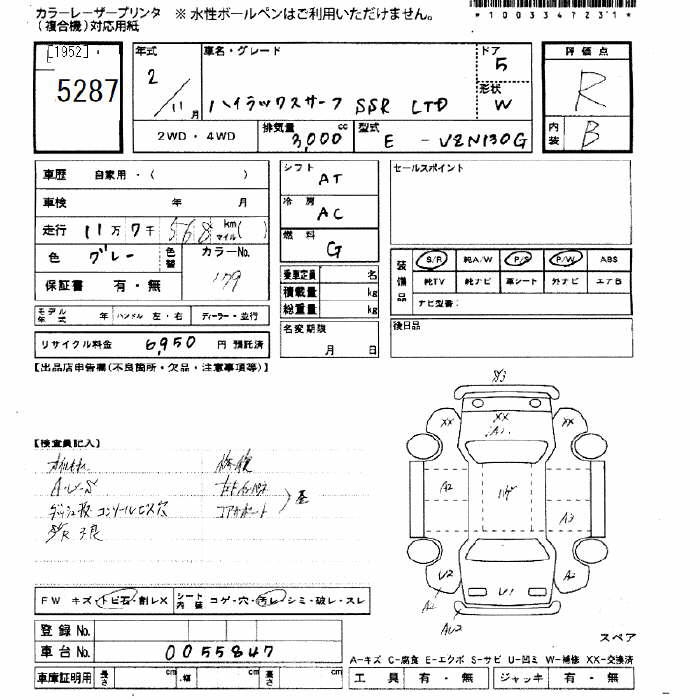 カラーレーザープリンタ ※ 水性ボールペンはご利用いただけません。
(複合機)対応用紙
*10033472317*
[1952]
5287
年式 車名・グレード ドア 評価点
2 / 11月 ハイラックスサーフ SSR LTD 5 R
形状 W
2WD・4WD 排気量 3,000 cc 型式 E - VZN130G 内装 B
車歴 自家用・( )
車検 年 月
走行 11万7千568 km( ) マイル
色 グレー 色替 カラーNo. 179
保証書 有・無
モデル年式 年 ハンドル 左・右 ディーラー・並行
リサイクル料金 6,950 円 預託済
シフト AT
冷房 AC
燃料 G
乗車定員 名
積載量 kg
総重量 kg
名変期限 月 日
セールスポイント
装備品 S/R 純A/W P/S P/W ABS
純TV 純ナビ 革シート 外ナビ エアB
ナビ型番:
後日品
【出品店申告欄(不良箇所・欠品・注意事項等)】
【検査員記入】
A・U・S
コンソールビス穴
S/R 不良
コアサポート
XX
XX
XX
A1
A2
A3
U2
A2
U1
FW キズ・トビ石・割レX シート内装 コゲ・穴・汚レ・シミ・破レ・スレ
登録No.
車台No. 0055847
車庫証明用 長さ cm 幅 cm 高さ cm
スペア
A-キズ C-腐食 E-エクボ S-サビ U-凹ミ W-補修 XX-交換済
工具 有・無 ジャッキ 有・無